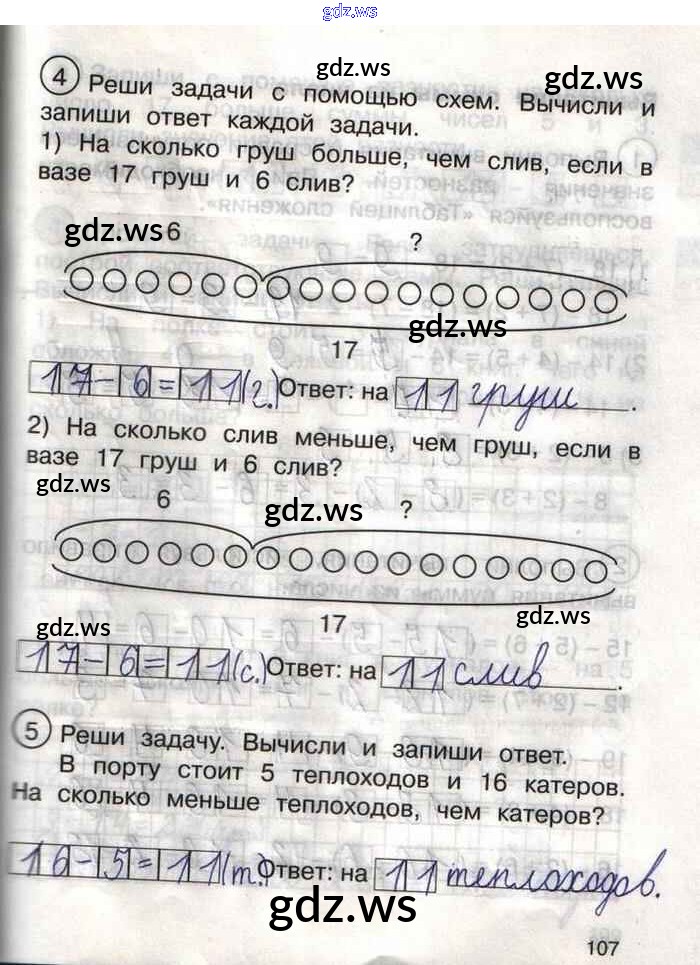 gdz.ws
gdz.ws
gdz.ws
4 Реши задачи с помощью схем. Вычисли и
запиши ответ каждой задачи.
1) На сколько груш больше, чем слив, если в
вазе 17 груш и 6 слив?
gdz.ws 6 ?
gdz.ws
17
17-6=11(г.) Ответ: на 11 груш.
2) На сколько слив меньше, чем груш, если в
вазе 17 груш и 6 слив?
gdz.ws
gdz.ws
6 ?
gdz.ws
gdz.ws
17
17-6=11(с.) Ответ: на 11 слив.
5 Реши задачу. Вычисли и запиши ответ.
В порту стоит 5 теплоходов и 16 катеров.
На сколько меньше теплоходов, чем катеров?
16-5=11(т.) Ответ: на 11 теплоходов.
gdz.ws
107